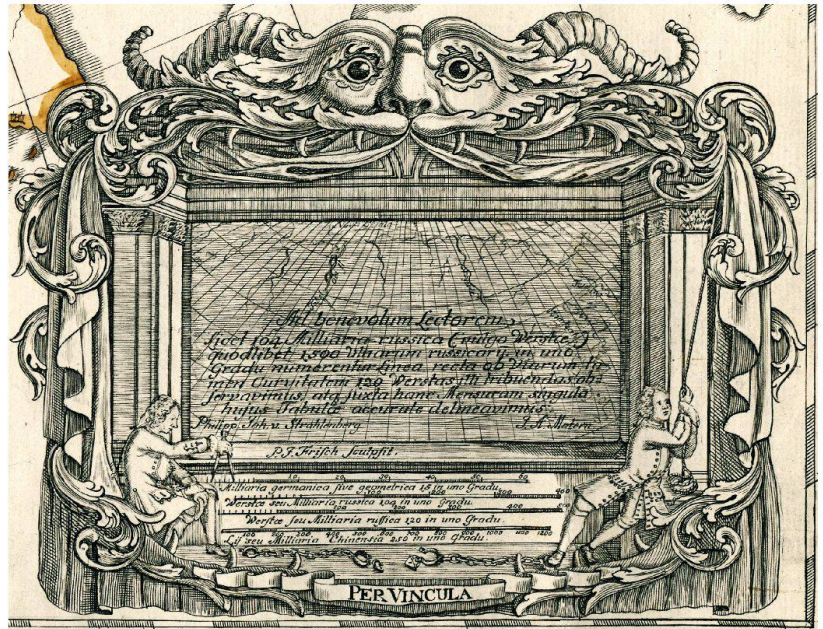 Ad benevolum Lectorem,
licet 104 Milliaria russica (vulgo Werstæ)
quodlibet 1500 Ulnarum russicarũ in uno
Gradu numerentur linea recta ob Viarum ta
men Curvitatem 120 Werstas ij tribuendas ob
servavimus, atq juxta hanc Mensuram singula
hujus Tabulæ accurate delineavimus.
Philipp Joh. v. Strahlenberg J. A. Matern
P. J. Frisch sculpsit.
10 20 30 40 50 60
Milliaria germanica sive geometrica 15 in uno Gradu.
100 200 300 600
Werstæ seu Milliaria russica 104 in uno Gradu.
100 200 400
Werstæ seu Milliaria russica 120 in uno Gradu.
100 200 300 400 500 600 700 800 1000 1100 1200
Li seu Milliaria Chinensia 250 in uno Gradu.
PER VINCULA